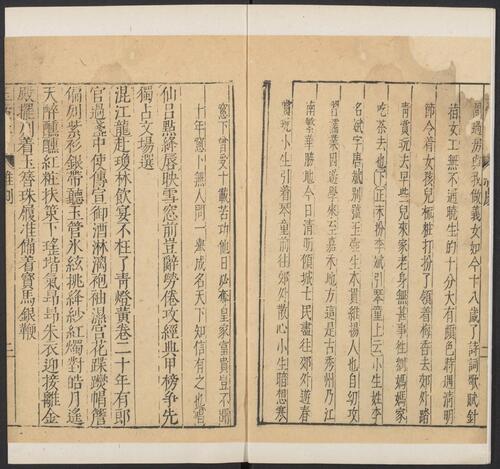 間過房與我做義女如今十八歲了詩詞歌賦針
指女工無不通曉生的十分大有顏色時遇清明
節令着女孩兒梳粧打扮了領着梅香去郊外踏
青賞玩去早些兒來家老身無甚事徃劉媽媽家
吃茶去也下正末扮李斌引琴童上云小生姓李
名斌字唐斌別號玉壺生本貫維揚人也自幼攻
習儒業因遊學來至嘉禾地方這是古秀州乃江
南繁華勝地今日清明傾城士民盡徃郊外遊春
賞玩小生引着琴童前徃郊外散心小生暗想寒
窓下曾受十載苦功他日必奪皇家富貴豈不聞
十年窓下無人問一舉成名天下知信有之也唱
仙呂點絳唇映雪窓前豈辭勞倦攻經典甲榜爭先
獨占文場選
混江龍赴瓊林飲宴不枉了青燈黃卷二十年有郎
官過盞中使傳宣御酒淋漓袍袖濕宮花蹀躞帽簷
偏列紫衫銀帶聽玉管氷絃挑絳紗紅燭對皓月遙
天醉醺醺紅粧扶策下瑤堦氣昂昂朱衣迎接離金
殿擺列着玉簪珠履准備着寶馬銀鞭